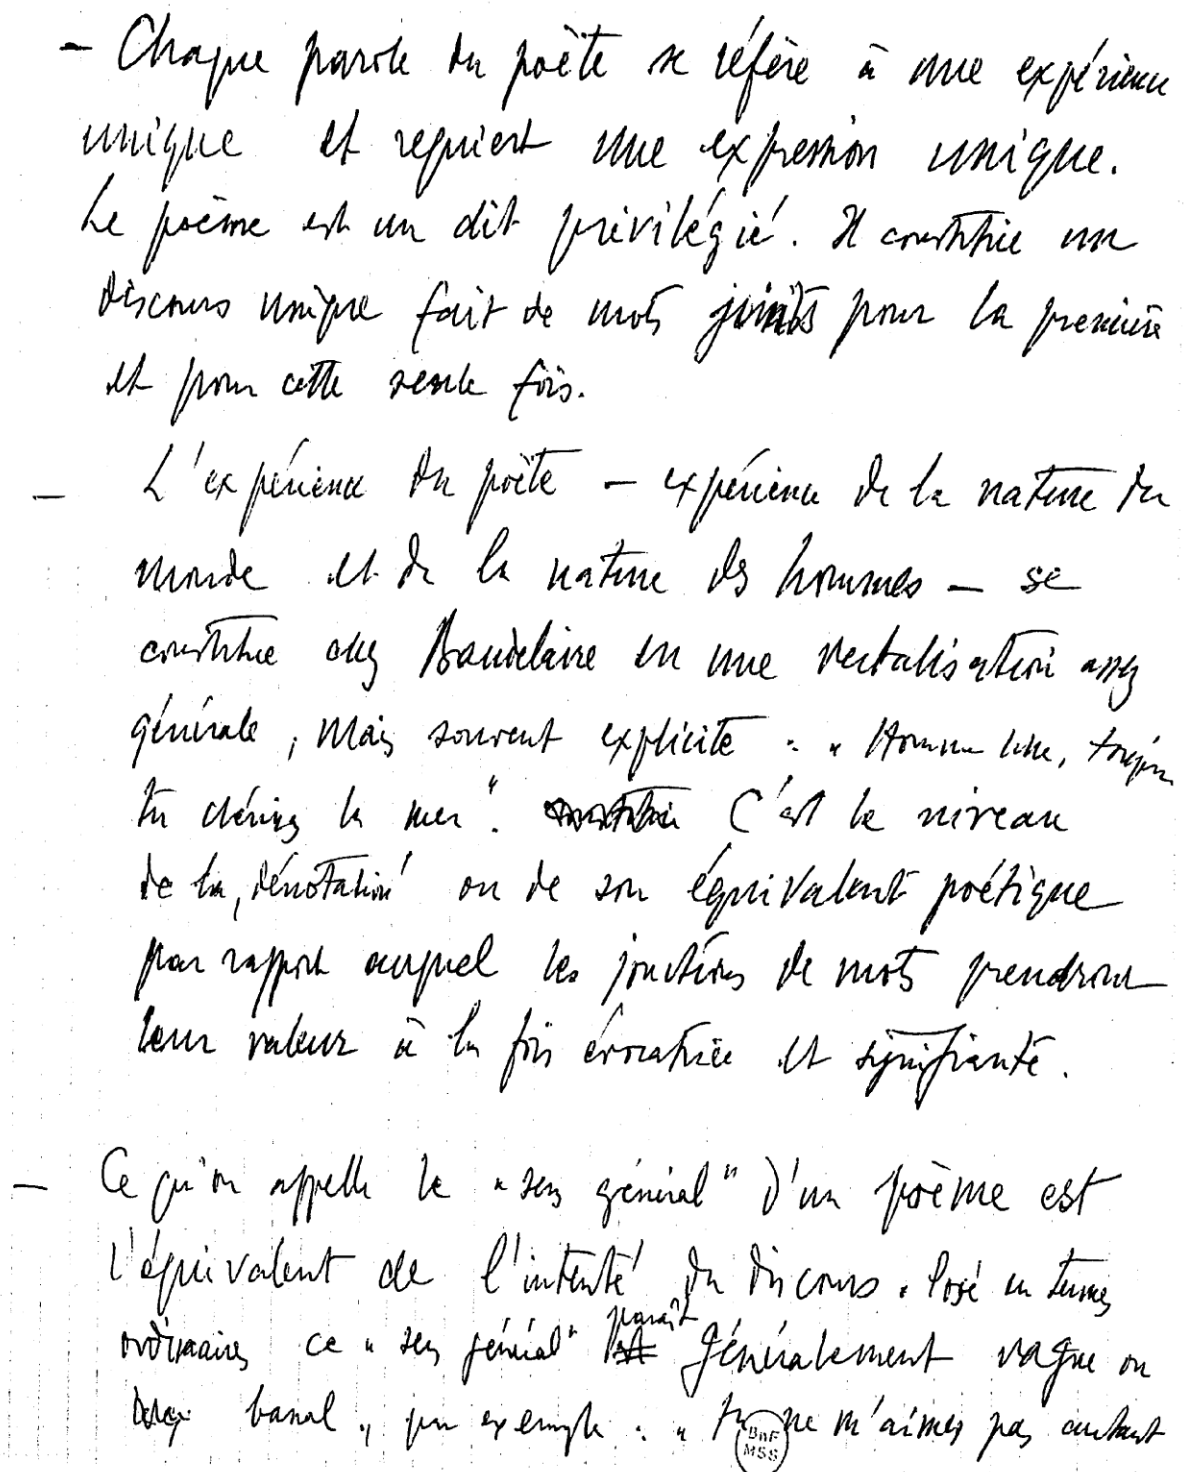 - Chaque parole du poète se réfère à une expérience
unique et requiert une expression unique.
Le poème est un dit privilégié. Il constitue un
discours unique fait de mots joints pour la première
et pour cette seule fois.
- L'expérience du poète - expérience de la nature du
monde et de la nature des hommes - se
constitue chez Baudelaire en une verbalisation assez
générale, mais souvent explicite : « Homme libre, toujours
tu chériras la mer". C'est le niveau
de la "dénotation" ou de son équivalent poétique
par rapport auquel les jonctions de mots prendront
leur valeur à la fois évocatrice et signifiante.
- Ce qu'on appelle le "sens général" d'un poème est
l'équivalent de l'intenté du discours. Posé en termes
ordinaires ce "sens général" paraît généralement vague ou
banal, par exemple : « tu ne m'aimes pas autant
BnF
MSS